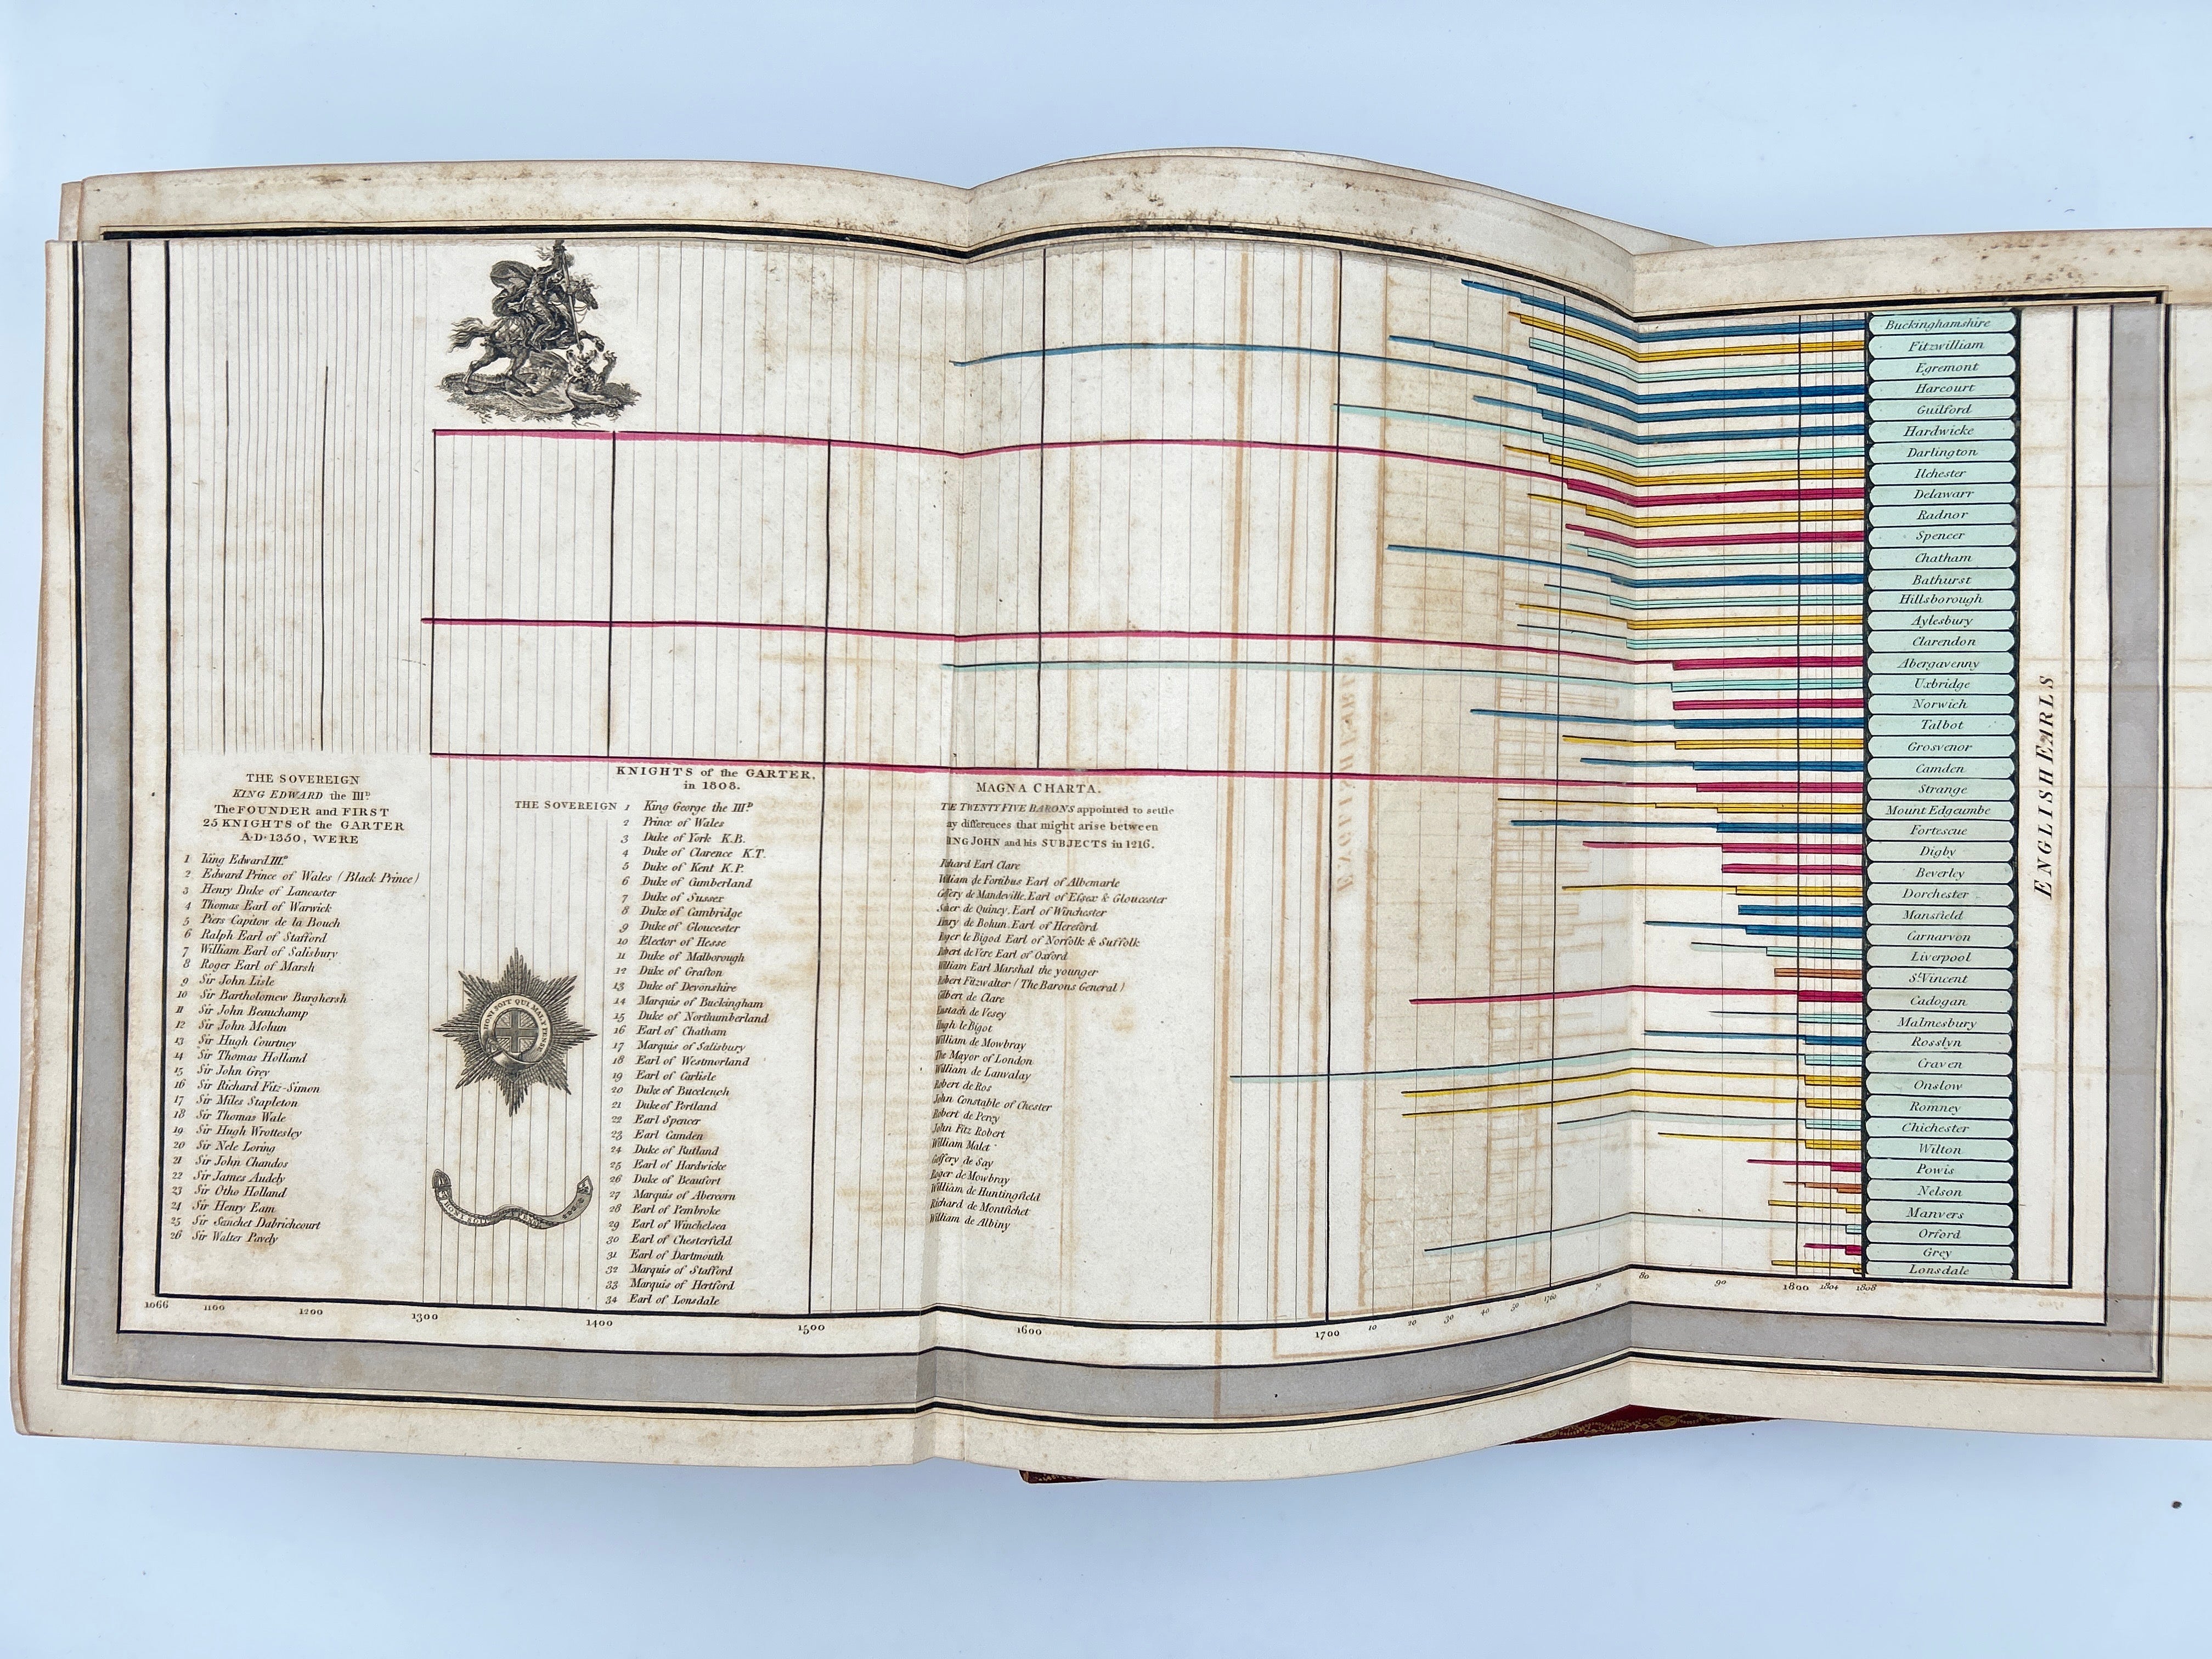 THE SOVEREIGN
KING EDWARD the III.D
The FOUNDER and FIRST
25 KNIGHTS of the GARTER
A.D. 1350, WERE
1 King Edward III.D
2 Edward Prince of Wales (Black Prince)
3 Henry Duke of Lancaster
4 Thomas Earl of Warwick
5 Piers Capitow de la Bouch
6 Ralph Earl of Stafford
7 William Earl of Salisbury
8 Roger Earl of Marsh
9 Sir John Lisle
10 Sir Bartholomew Burghersh
11 Sir John Beauchamp
12 Sir John Mohun
13 Sir Hugh Courtney
14 Sir Thomas Holland
15 Sir John Grey
16 Sir Richard Fitz-Simon
17 Sir Miles Stapleton
18 Sir Thomas Wale
19 Sir Hugh Wrottesley
20 Sir Nele Loring
21 Sir John Chandos
22 Sir James Audely
23 Sir Otho Holland
24 Sir Henry Eam
25 Sir Sanchet Dabrichcourt
26 Sir Walter Pavely
HONI SOIT QUI MAL Y PENSE
KNIGHTS of the GARTER,
in 1808.
THE SOVEREIGN 1 King George the III.D
2 Prince of Wales
3 Duke of York K.B.
4 Duke of Clarence K.T.
5 Duke of Kent K.P.
6 Duke of Cumberland
7 Duke of Sussex
8 Duke of Cambridge
9 Duke of Gloucester
10 Elector of Hesse
11 Duke of Malborough
12 Duke of Grafton
13 Duke of Devonshire
14 Marquis of Buckingham
15 Duke of Northumberland
16 Earl of Chatham
17 Marquis of Salisbury
18 Earl of Westmorland
19 Earl of Carlisle
20 Duke of Buccleugh
21 Duke of Portland
22 Earl Spencer
23 Earl Camden
24 Duke of Rutland
25 Earl of Hardwicke
26 Duke of Beaufort
27 Marquis of Abercorn
28 Earl of Pembroke
29 Earl of Winchelsea
30 Earl of Chesterfield
31 Earl of Dartmouth
32 Marquis of Stafford
33 Marquis of Hertford
34 Earl of Lonsdale
MAGNA CHARTA.
TWENTY FIVE BARONS appointed to settle
differences that might arise between
JOHN and his SUBJECTS in 1216.
Earl Clare
William de Fortibus Earl of Albemarle
Geffery de Mandeville, Earl of Essex & Gloucester
de Quincy, Earl of Winchester
de Bohun, Earl of Hereford
le Bigod Earl of Norfolk & Suffolk
de Vere Earl of Oxford
William Earl Marshal the younger
Robert Fitzwalter (The Barons General)
Gilbert de Clare
Eustach de Vesey
Hugh le Bigot
William de Mowbray
The Mayor of London
William de Lanvalay
Robert de Ros
John Constable of Chester
Robert de Percy
John Fitz Robert
William Malet
Geffery de Say
Roger de Mowbray
William de Huntingfield
Richard de Montfichet
William de Albiny
Buckinghamshire
Fitzwilliam
Egremont
Harcourt
Guilford
Hardwicke
Darlington
Ilchester
Delawarr
Radnor
Spencer
Chatham
Bathurst
Hillsborough
Aylesbury
Clarendon
Abergavenny
Uxbridge
Norwich
Talbot
Grosvenor
Camden
Strange
Mount Edgcumbe
Fortescue
Digby
Beverley
Dorchester
Mansfield
Carnarvon
Liverpool
St. Vincent
Cadogan
Malmesbury
Rosslyn
Craven
Onslow
Romney
Chichester
Wilton
Powis
Nelson
Manvers
Orford
Grey
Lonsdale
ENGLISH EARLS
1066 1100 1200 1300 1400 1500 1600 1700 10 20 30 40 50 1760 70 80 90 1800 1804 1808